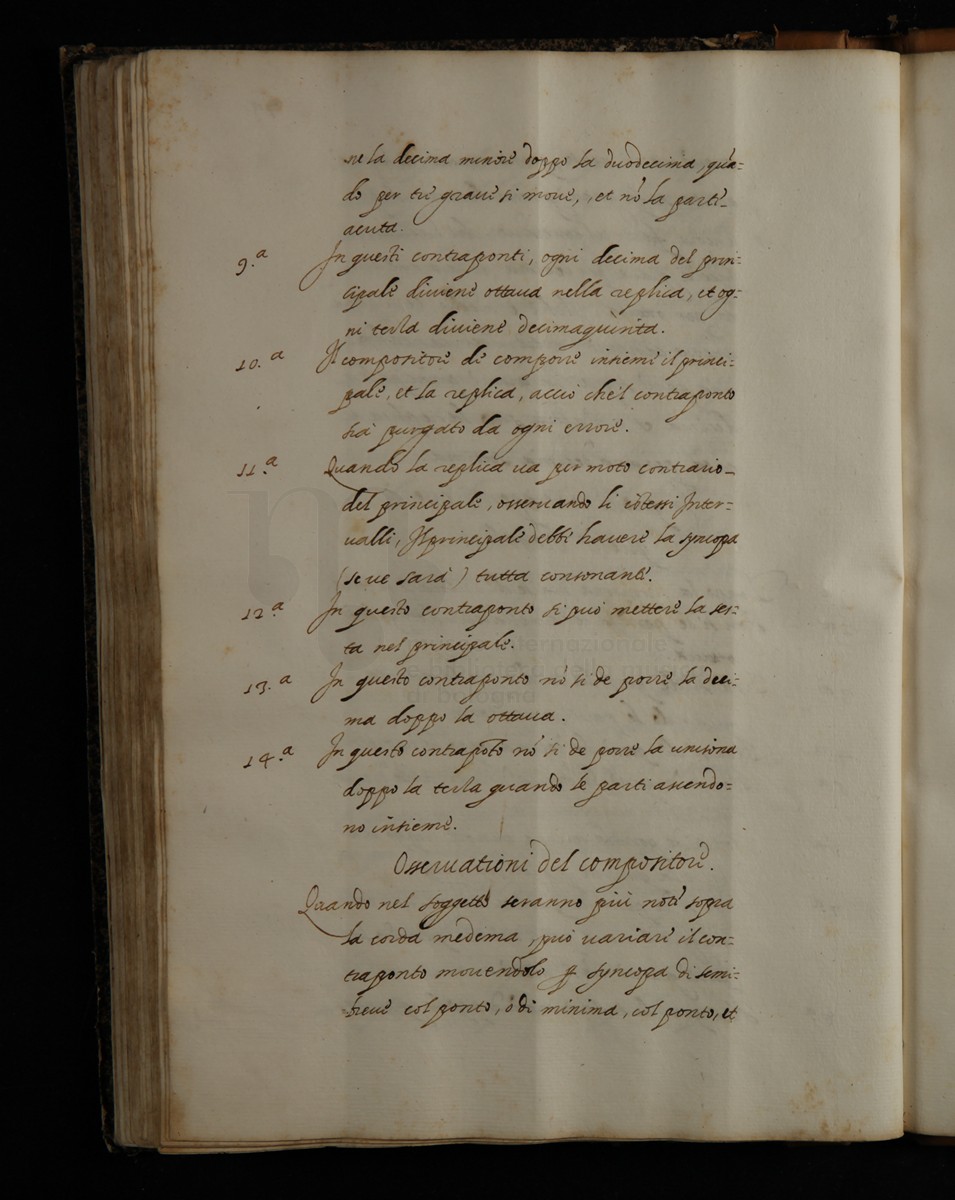 ne la decima minore doppo la duodecima, quã-
do per tre grave si move, et nõ la parte
acuta.
9.a In questi contraponti, ogni decima del prin=
cipale diviene ottava nella replica, et og=
ni terza diviene decimaquinta.
10.a Il compositore de comporre insieme il princi=
pale, et la replica, acciò che'l contraponto
sia purgato da ogni errore.
11.a Quando la replica va per moto contrario
del principale, osservando li istessi Inter=
valli, Il principale debbe havere la syncopa
(se ve sarà) tutta consonante.
12.a In questo contraponto si può mettere la ses=
ta nel principale.
13.a In questo contraponto nõ si de porre la deci=
ma doppo la ottava.
14.a In questo contrapõto nõ si de porre la unisona
doppo la terza quando le parti ascendo=
no insieme.
Osservationi del compositore.
Quando nel soggetto seranno più note sopra
la corda medema, può variare il con=
traponto movendolo ꝑ syncopa di semi=
breve col ponto, ò di minima, col ponto, et
internazionale